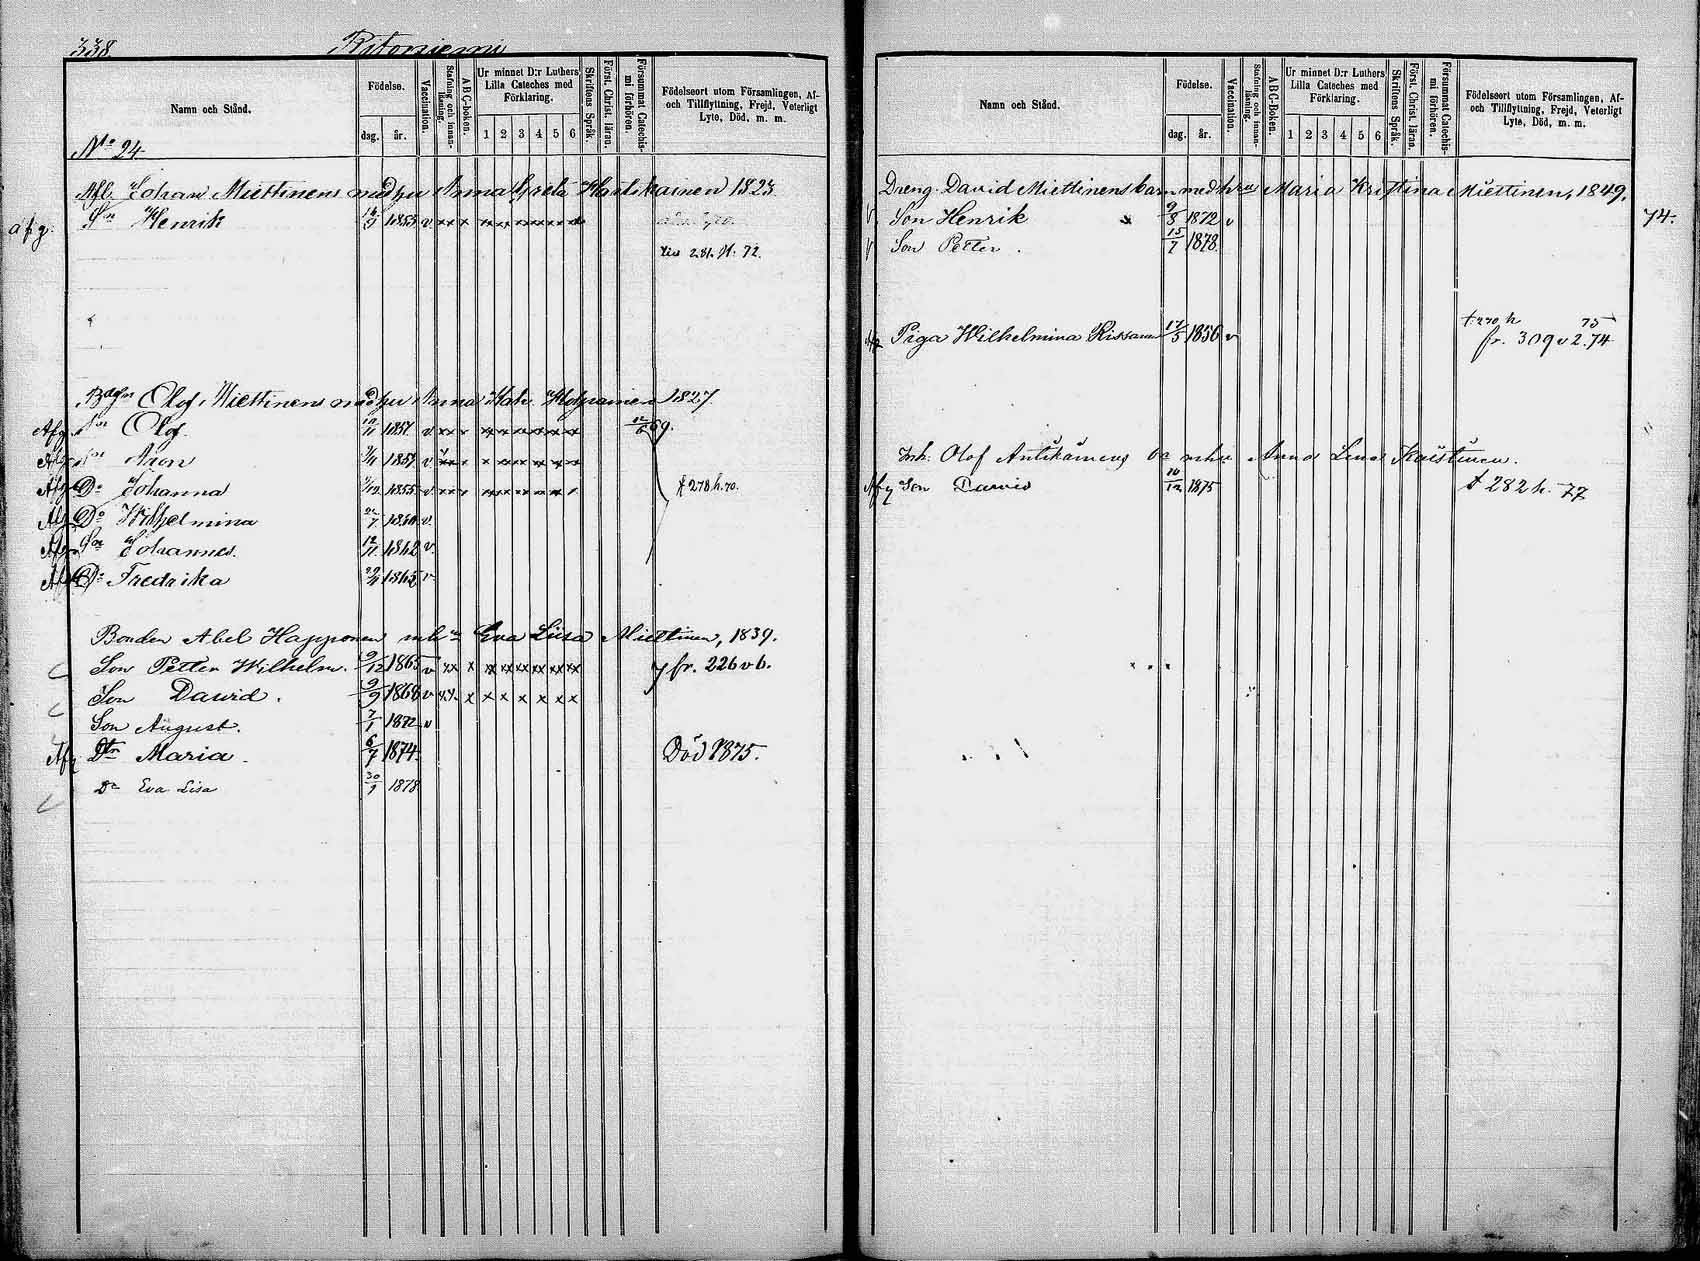 338. Ritoniemi
Namn och Stånd.
Födelse.
dag. år.
Vaccination.
Stafning och innanläsning.
ABC-boken.
Ur minnet D:r Luthers Lilla Cateches med Förklaring.
1 2 3 4 5 6
Skriftens Språk.
Först. Christ. läran.
Försummat Catechismi förhören.
Födelseort utom Församlingen, Af- och Tillflyttning, Frejd, Veterligt Lyte, Död, m. m.
No 24.
Afl. Johan Miettinens med hu Anna Greta Hartikainen 1823
afg. Sn Henrik 1853 v xx x x x x x x x
281. H. 72.
Olof Miettinens med hu Anna Kah. 1827.
Afg. Sn Olof. 1851 v xx x xx x x x x x 69.
Afg. Sn Aron 1851 v xx x x x x x x x
Afg. Dr Johanna 1855 v xx x xx x x x x x 278 h. 70.
Afg. Dr Wilhelmina v.
Afg. Sn Johannes. 12/11 1862 v.
Afg. Dr Fredrika 1865 v
Bonden Abel Happonen mh Eva Liisa Miettinen, 1839.
Son Petter Wilhelm. 9/12 1865 v xx x xx xx xx xx xx xx fr. 226 v b.
Son Dawid. 9/9 1868 v x.x. x x x x x x x
Son August. 7/1 1872 v
Afg Dtr Maria. 6/7 1874. Död 1875.
Dr Eva Lisa 30/9 1878
Namn och Stånd.
Födelse.
dag. år.
Vaccination.
Stafning och innanläsning.
ABC-boken.
Ur minnet D:r Luthers Lilla Cateches med Förklaring.
1 2 3 4 5 6
Skriftens Språk.
Först. Christ. läran.
Försummat Catechismi förhören.
Födelseort utom Församlingen, Af- och Tillflyttning, Frejd, Veterligt Lyte, Död, m. m.
Dreng. David Miettinens barn med hru Maria Kristina Miettinen, 1849.
v. Son Henrik 9/8 1872 v 74.
v Son Petter. 15/7 1878.
t 270 h 75
Afg Piga Wilhelmina Rissanen 17/5 1856 v fr. 309 v 2.74
Inh. Olof Antikainens mhu Anna Lena Kaistinen.
Afg Son Dawid 10/12 1875 t 282 h. 77